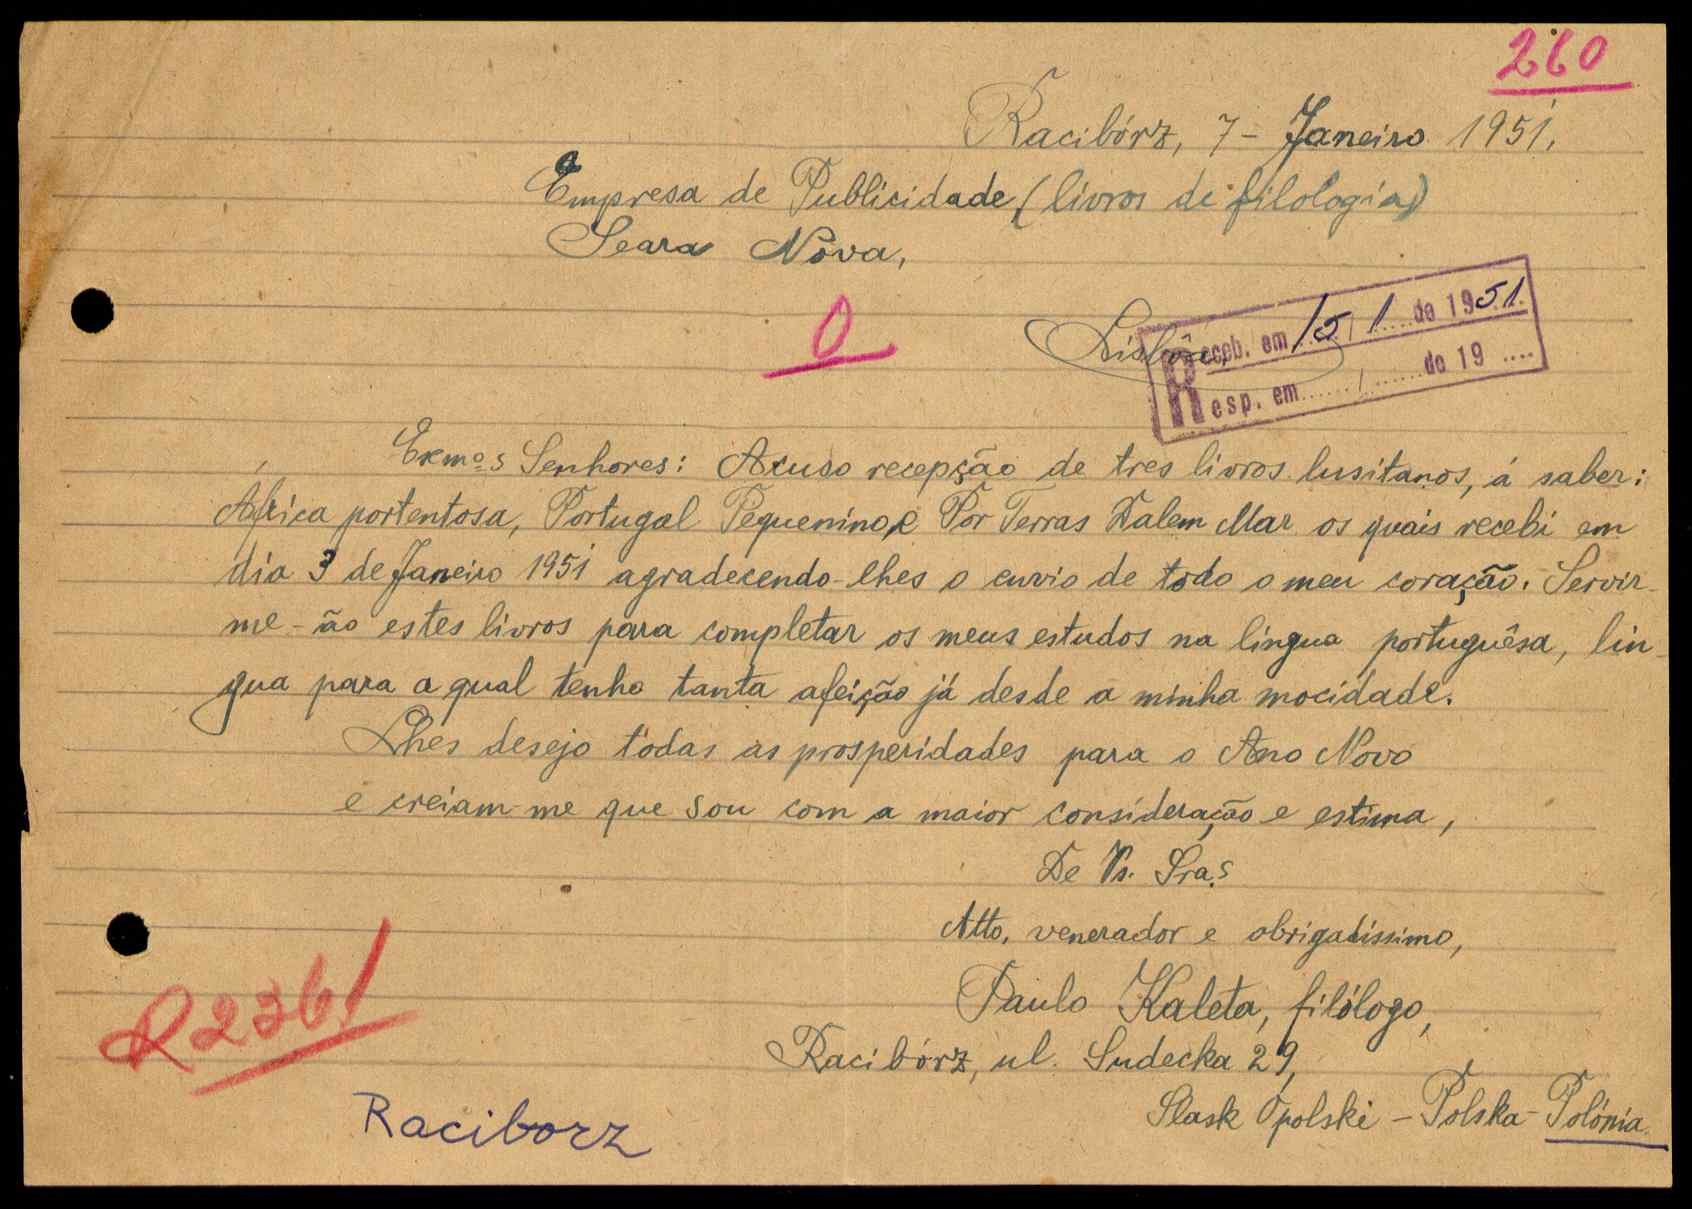 260
Racibórz, 7 - Janeiro 1951.
Empresa de Publicidade (livros de filologia)
Seara Nova,
0
Lisbôa,
Receb. em 15/1 de 1951.
Resp. em ...... / ...... de 19 ....
Exmos Senhores: Acuso recepção de tres livros lusitanos, á saber:
África portentosa, Portugal Pequenino, e Por Terras Dalem Mar os quais recebi em
dia 3 de Janeiro 1951 agradecendo-lhes o envio de todo o meu coração. Servir-
me-ão estes livros para completar os meus estudos na lingua portuguêsa, lin-
gua para a qual tenho tanta afeição já desde a minha mocidade.
Lhes desejo tôdas as prosperidades para o Ano Novo
e creiam-me que sou com a maior consideração e estima,
De Vs. Sras
Atto, venerador e obrigadissimo,
Paulo Kaleta, filólogo,
Racibórz, ul. Sudecka 29,
Slask Opolski - Polska - Polónia.
R2361
Raciborz